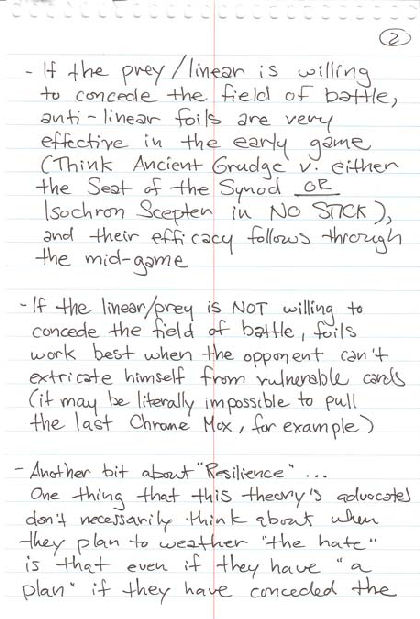 2
- If the prey/linear is willing
to concede the field of battle,
anti-linear foils are very
effective in the early game
(Think Ancient Grudge v. either
the Seat of the Synod OR
Isochron Scepter in NO STICK),
and their efficacy follows through
the mid-game
- If the linear/prey is NOT willing to
concede the field of battle, foils
work best when the opponent can't
extricate himself from vulnerable cards
(it may be literally impossible to pull
the last Chrome Mox, for example)
- Another bit about "Resilience"...
One thing that this theory's advocates
don't necessarily think about when
they plan to weather "the hate"
is that even if they have "a
plan" if they have conceded the